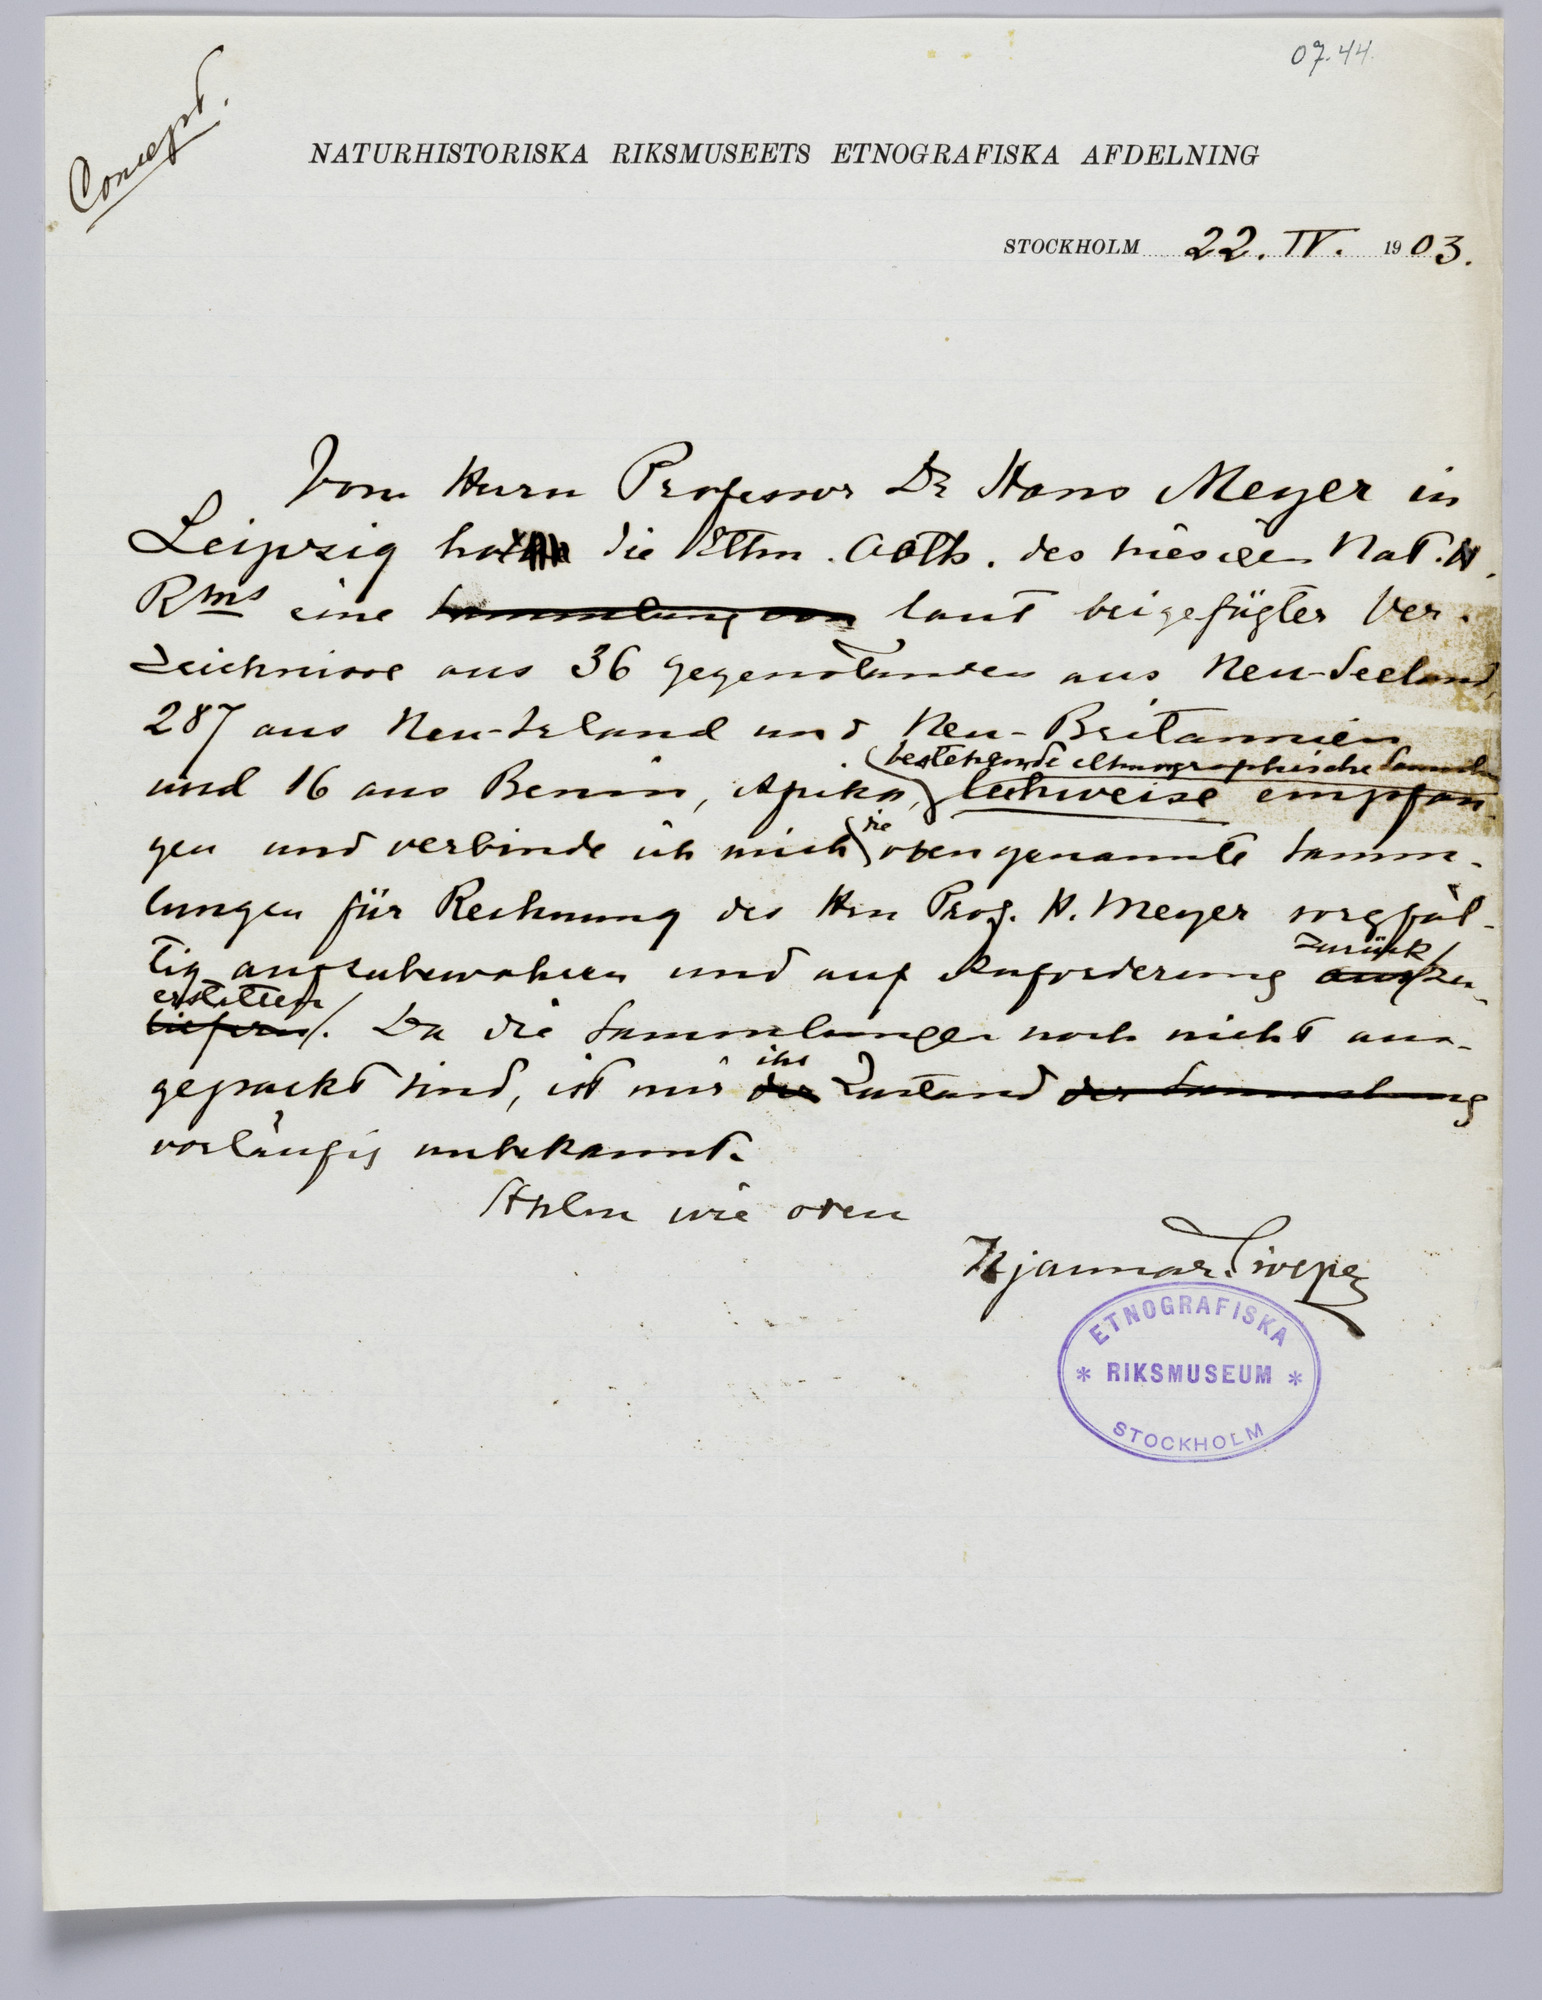 07.44.
Concept.
NATURHISTORISKA RIKSMUSEETS ETNOGRAFISKA AFDELNING
STOCKHOLM 22. IV. 1903.
Vom Herrn Professor Dr Hans Meyer in
Leipzig hat die Ethn. Abth. des hiesigen Nat. H.
Rms eine Sammlung von laut beigefügter Ver-
zeichnisse aus 36 Gegenständen aus Neu-Seeland,
287 aus Neu-Irland und Neu-Britannien
bestehende ethnographische Samml
und 16 aus Benin, Afrika, leihweise empfan-
die
gen und verbinde ich mich oben genannte Samm-
lungen für Rechnung des Hrn Prof. H. Meyer sorgfäl-
zurück
tig aufzubewahren und auf Anforderung aus zu
erstatten
liefern. Da die Sammlungen noch nicht aus-
ihr
gepackt sind, ist mir der Zustand der Sammlung
vorläufig unbekannt.
Sthlm wie oben
Hjalmar Stolpe
ETNOGRAFISKA
* RIKSMUSEUM *
STOCKHOLM